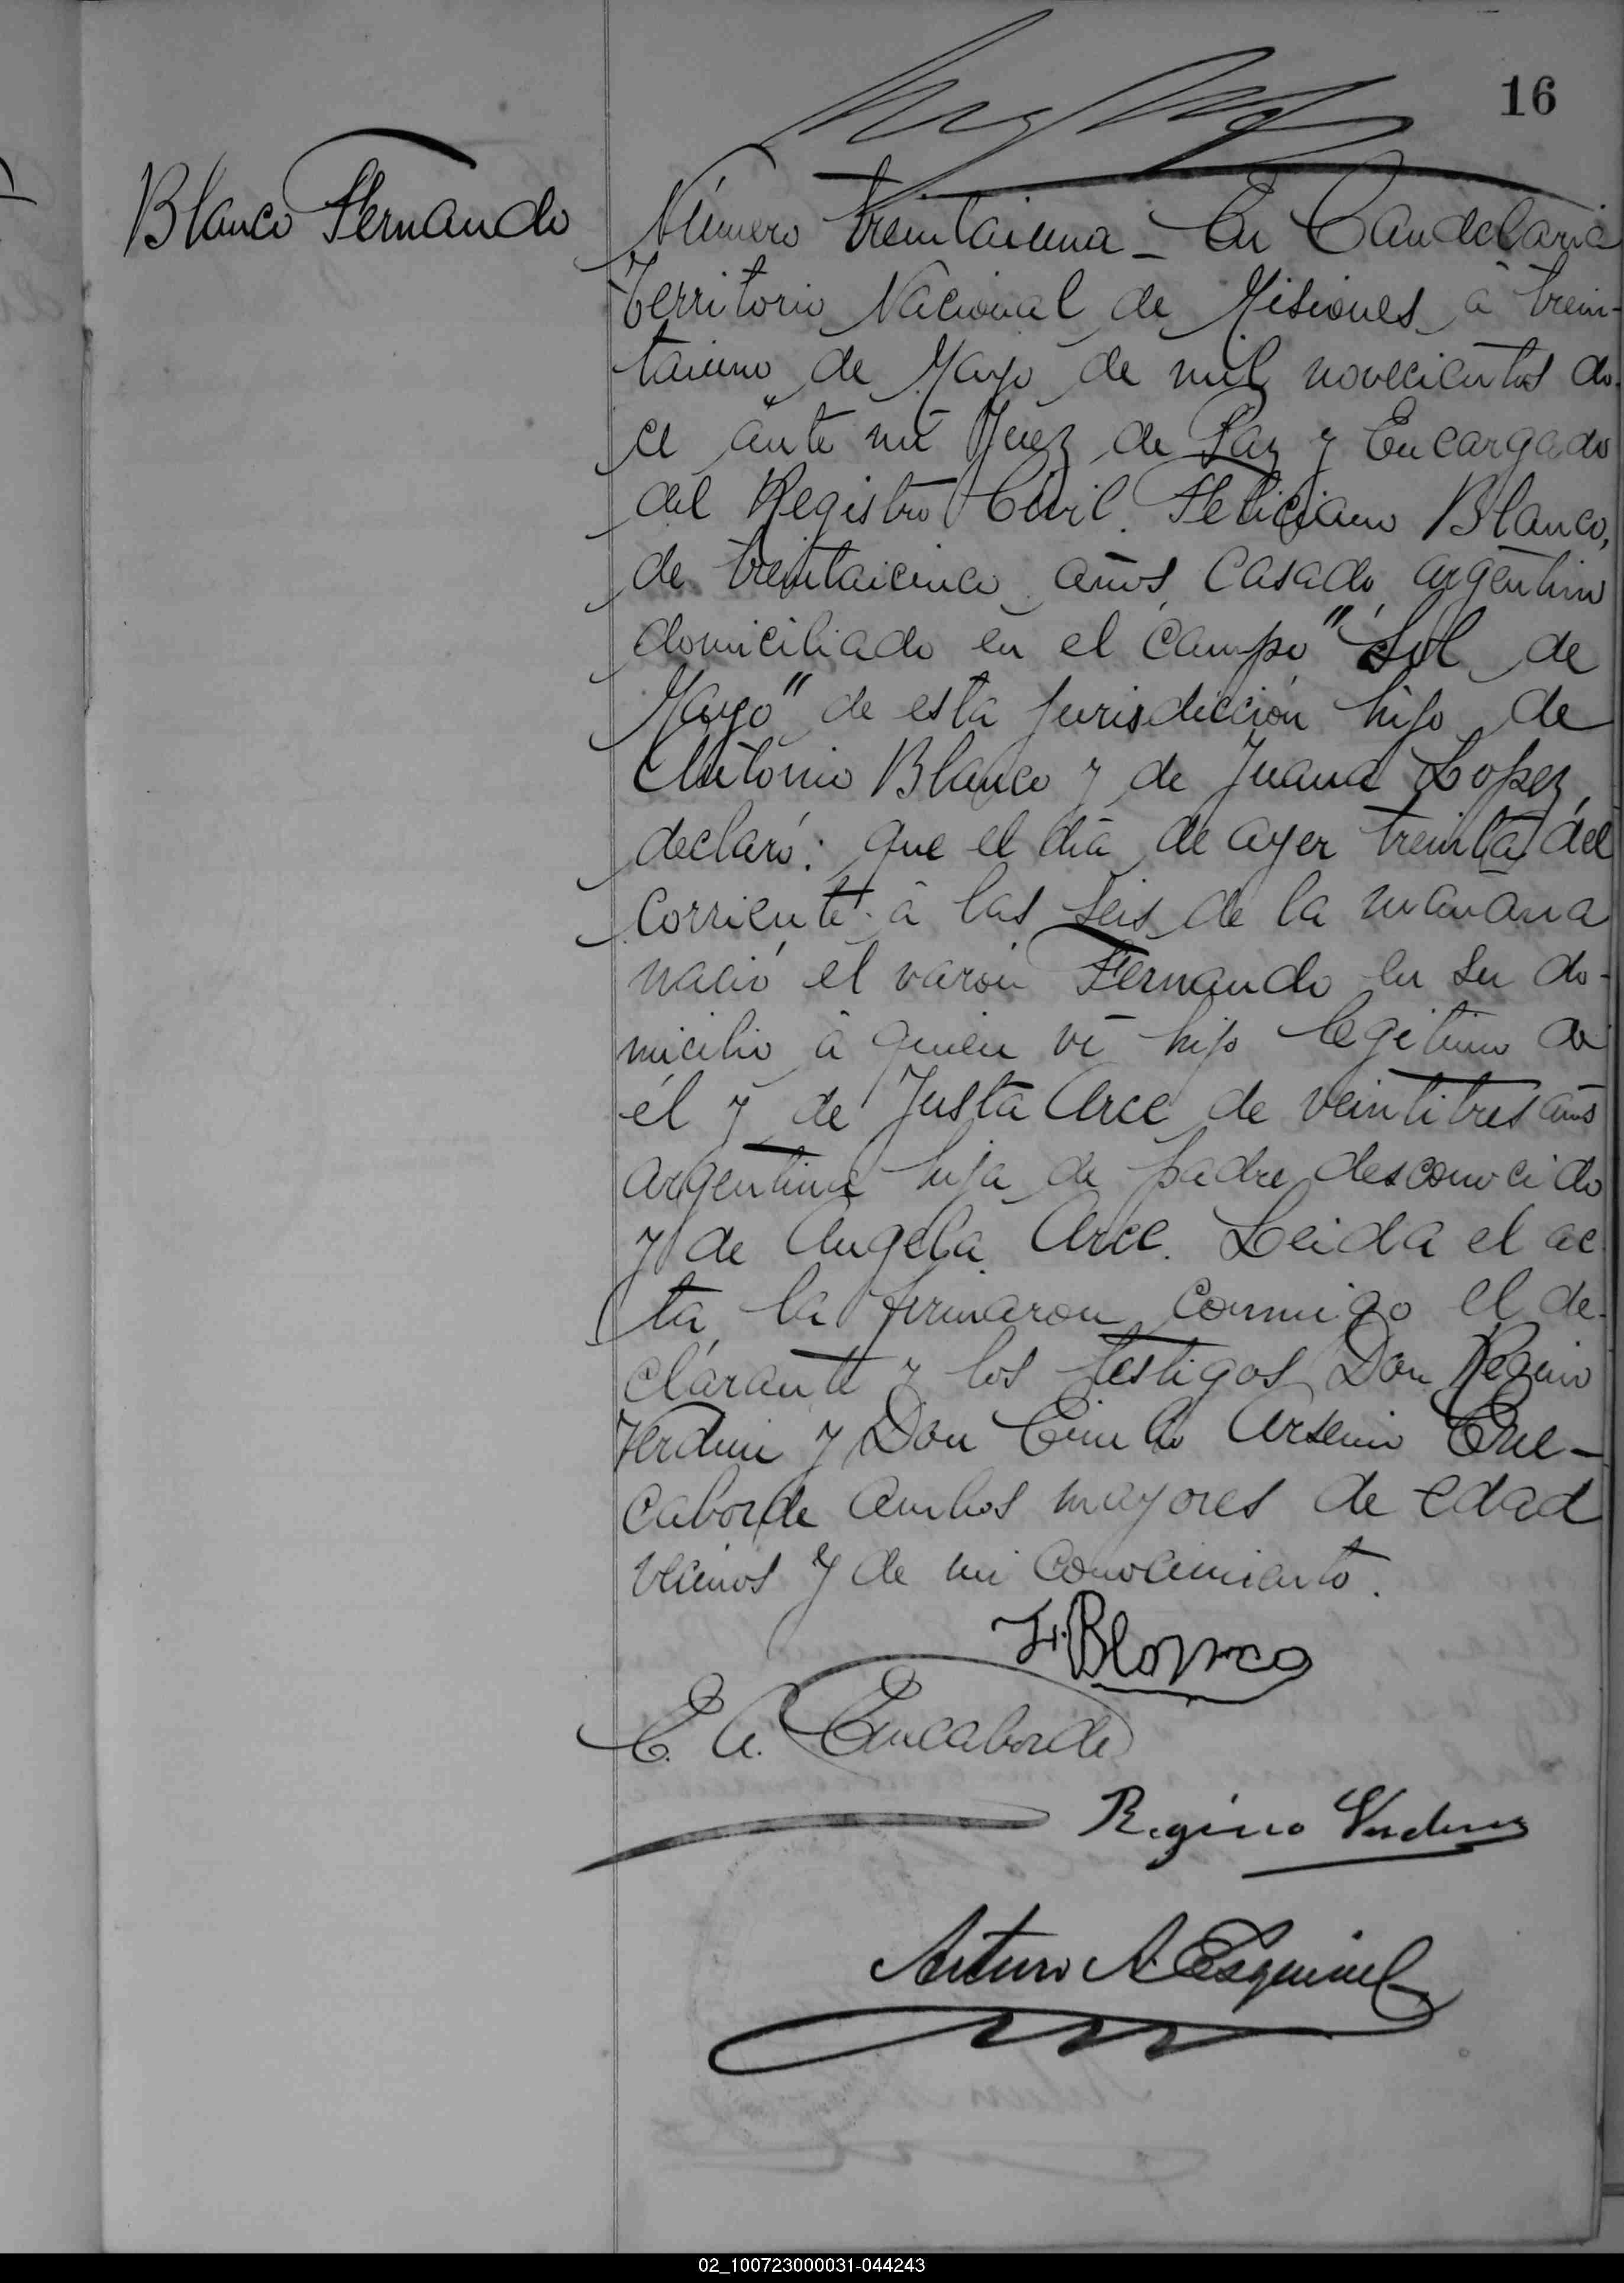 16
Blanco Fernando
Número treintaiuna_ En Candelaria
Territorio Nacional de Misiones à trein-
taiuno de Mayo de mil novecientos do-
ce ante mi Juez de Paz y Encargado
del Registro Civil. Feliciano Blanco,
de treintaicinco años, casado, argentino
domiciliado en el campo "Sol de
Mayo" de esta jurisdicción hijo de
Antonio Blanco y de Juana Lopez,
declaró: que el dia de ayer treinta del
corriente à las seis de la mañana
nació el varón Fernando en su do-
micilio à quien vi hijo legitimo de
él y de Justa Arce de veintitres años
argentina hija de padre desconocido
y de Angela Arce. Leida el ac
ta la firmaron conmigo el de-
clarante y los testigos Don Regino
Verdun y Don Arsenio
caborde ambos mayores de edad
vecinos y de mi conocimiento.
F. Blanco
E. A. Encaborde
Regino Verdun
Arturo A. Esquivel
02_100723000031-044243